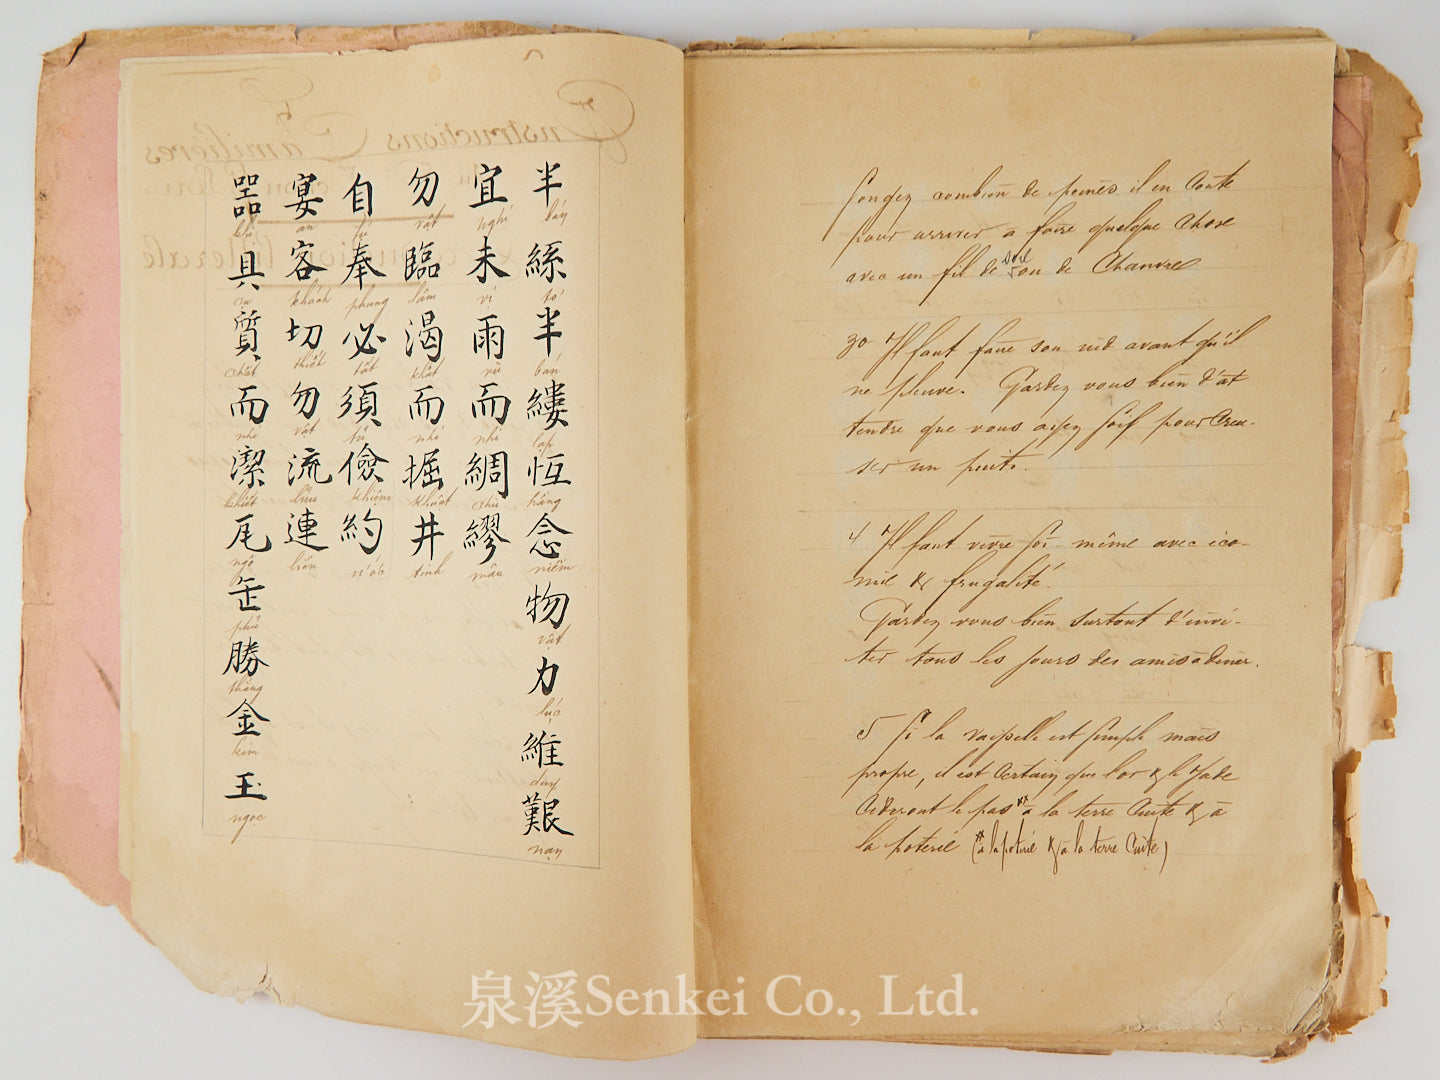 Instructions Familières
半絲半縷恆念物力維艱
bán tơ bán lap hằng niềm vật lực duy nạn
宜未雨而綢繆
nghi vị vũ nhi chù mâu
勿臨渴而掘井
vật lâm khát nhi khuất tinh
自奉必須儉約
tự phụng tất tu khiệm ước
宴客切勿流連
an khách thiết vật lưu liên
噐具質而潔瓦缶勝金玉
cụ chất nhi khiết ngõ phủ thắng kim ngọc
Songez combien de peines il en coûte
pour arriver a faire quelque chose
avec un fil de soie ou de Chanvre
3º Il faut faire son nid avant qu'il
ne pleuve. Gardez vous bien d'at
tendre que vous ayez soif pour creu-
ser un puits.
4 Il faut vivre soi-même avec éco-
mie & frugalité.
Gardez vous bien surtout d'invi-
ter tous les jours des amis à diner.
5 Si la vaisselle est simple mais
propre, il est certain que l'or & le Jade
cèderont le pas ** à la terre cuite & à
la poterie (** à la poterie & à la terre cuite)
泉溪Senkei Co., Ltd.